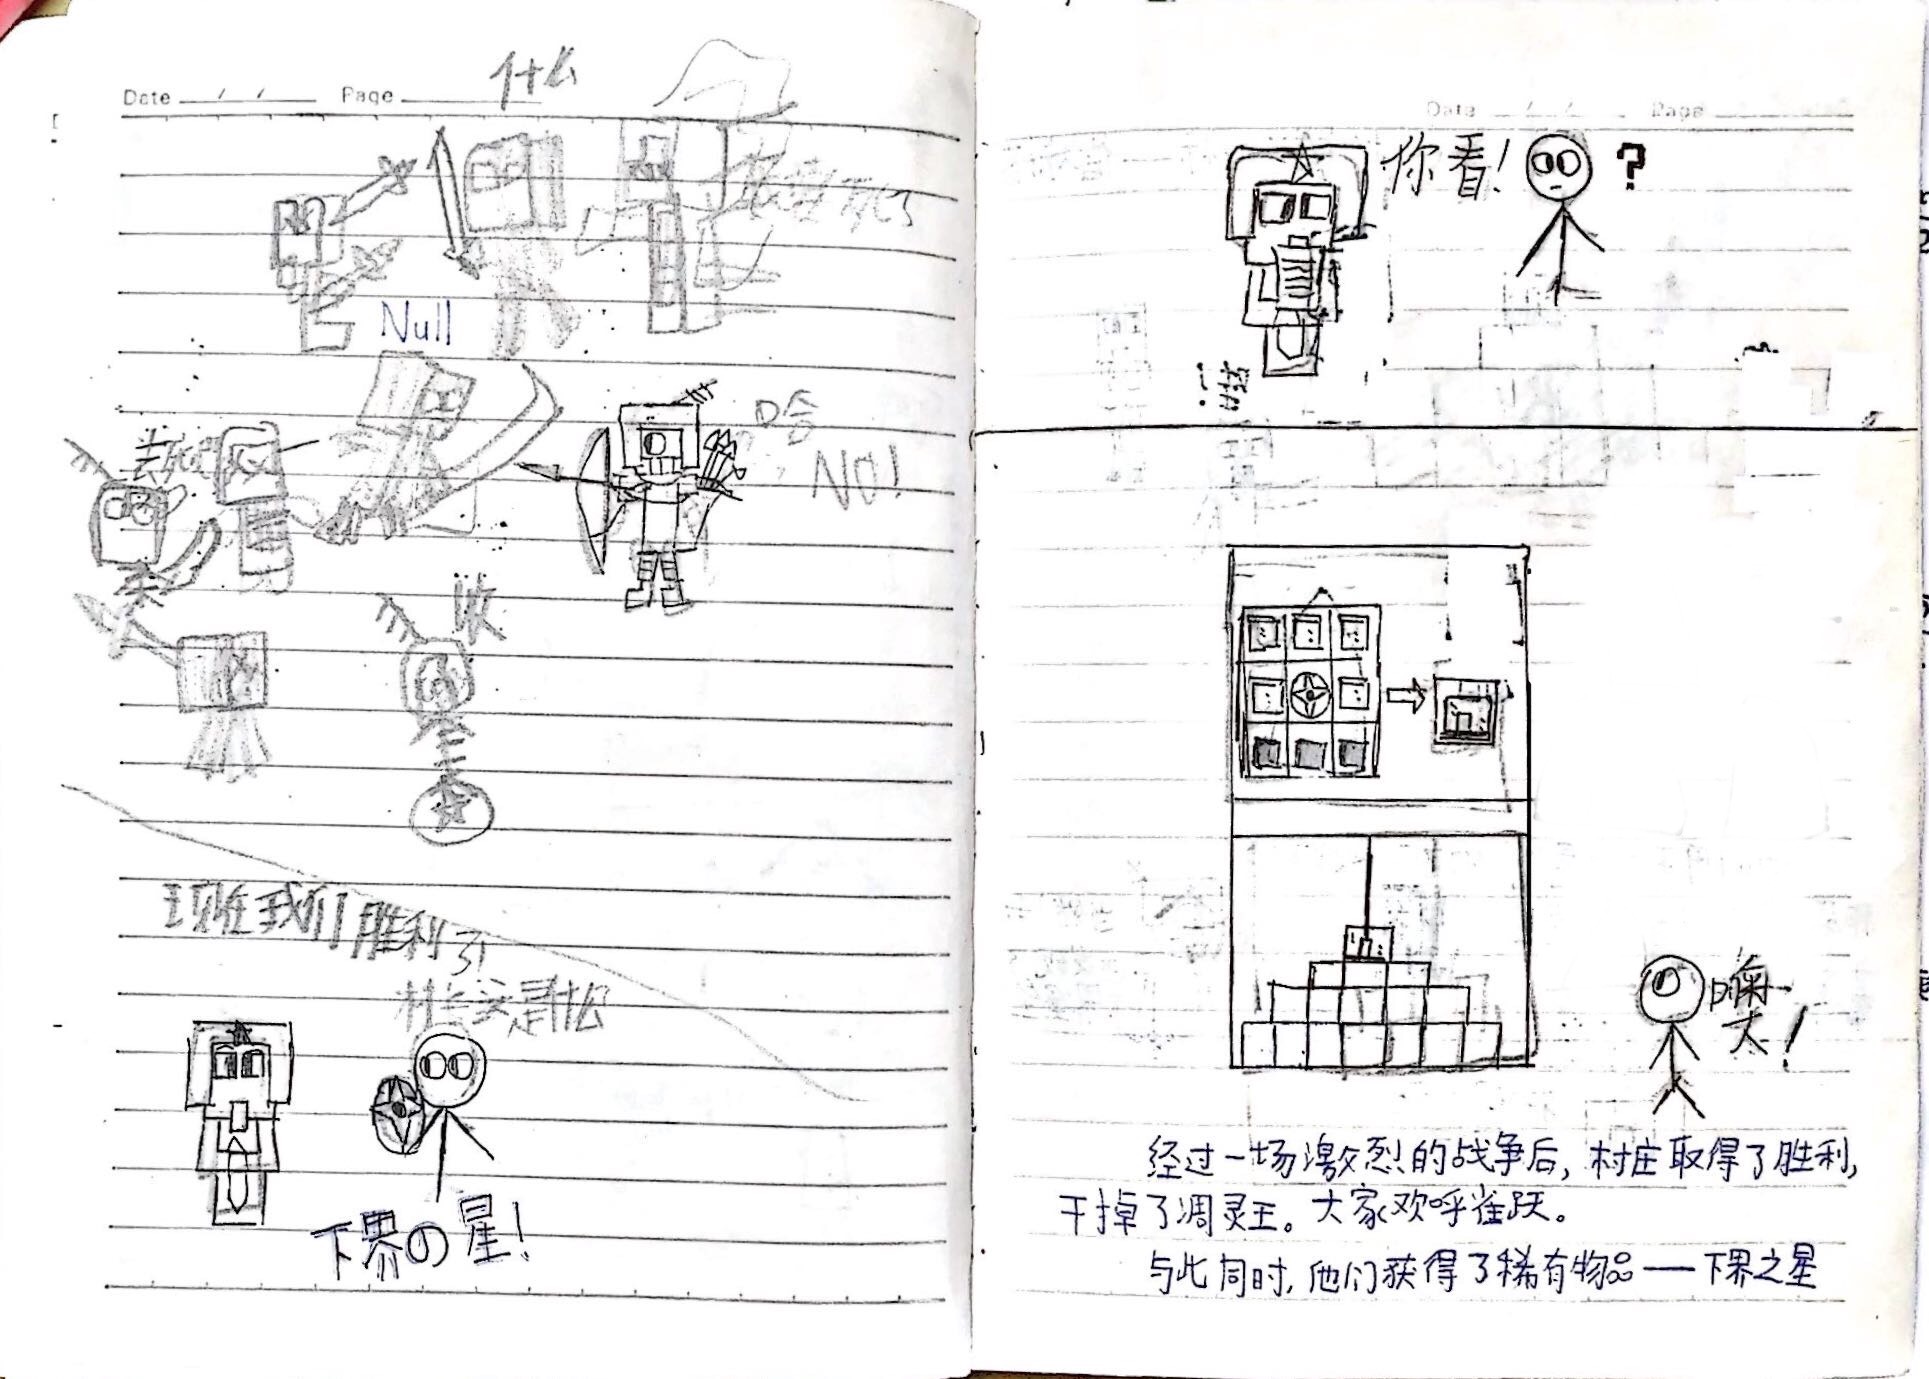 Date / / Page
什么
Null
去死吧
哈
NO!
收
现在我们胜利了
村长这是什么
下界の星!
Date / / Page
你看!
?
噢
大!
经过一场激烈的战争后,村庄取得了胜利,
干掉了凋灵王。大家欢呼雀跃。
与此同时,他们获得了稀有物品——下界之星